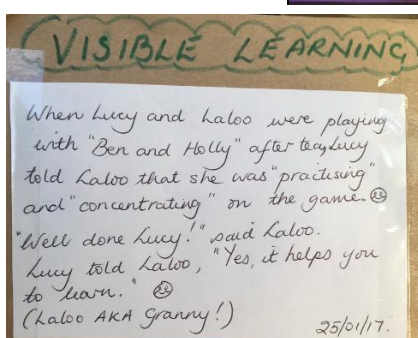 VISIBLE LEARNING
When Lucy and Laloo were playing
with "Ben and Holly" after tea, Lucy
told Laloo that she was "practising"
and "concentrating" on the game.
"Well done Lucy!" said Laloo.
Lucy told Laloo, "Yes, it helps you
to learn."
(Laloo AKA Granny!)
25/01/17.